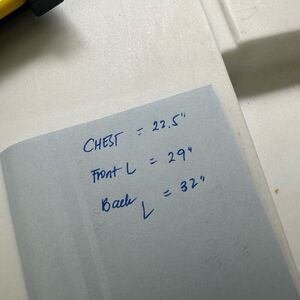 CHEST = 22.5"
Front L = 29"
Back L = 32"